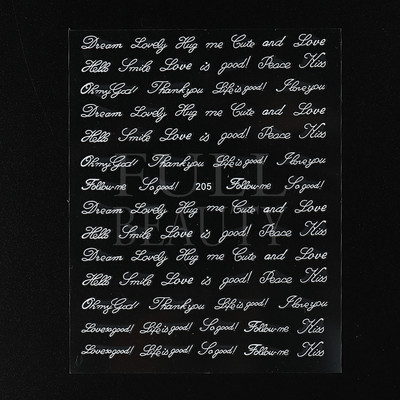 Dream Lovely Hug me Cute and Love
Hello Smile Love is good! Peace Kiss
Oh my God! Thank you Life is good! I love you
Dream Lovely Hug me Cute and Love
Hello Smile Love is good! Peace Kiss
Oh my God! Thank you Life is good! I love you
FULL
Follow me So good! 205 Follow me So good!
Dream Lovely Hug me Cute and Love
BEAUTY
Hello Smile Love is good! Peace Kiss
Dream Lovely Hug me Cute and Love
Hello Smile Love is good! Peace Kiss
Oh my God! Thank you Life is good! I love you
Love so good! Life is good! So good! Follow me Kiss
Love so good! Life is good! So good! Follow me Kiss